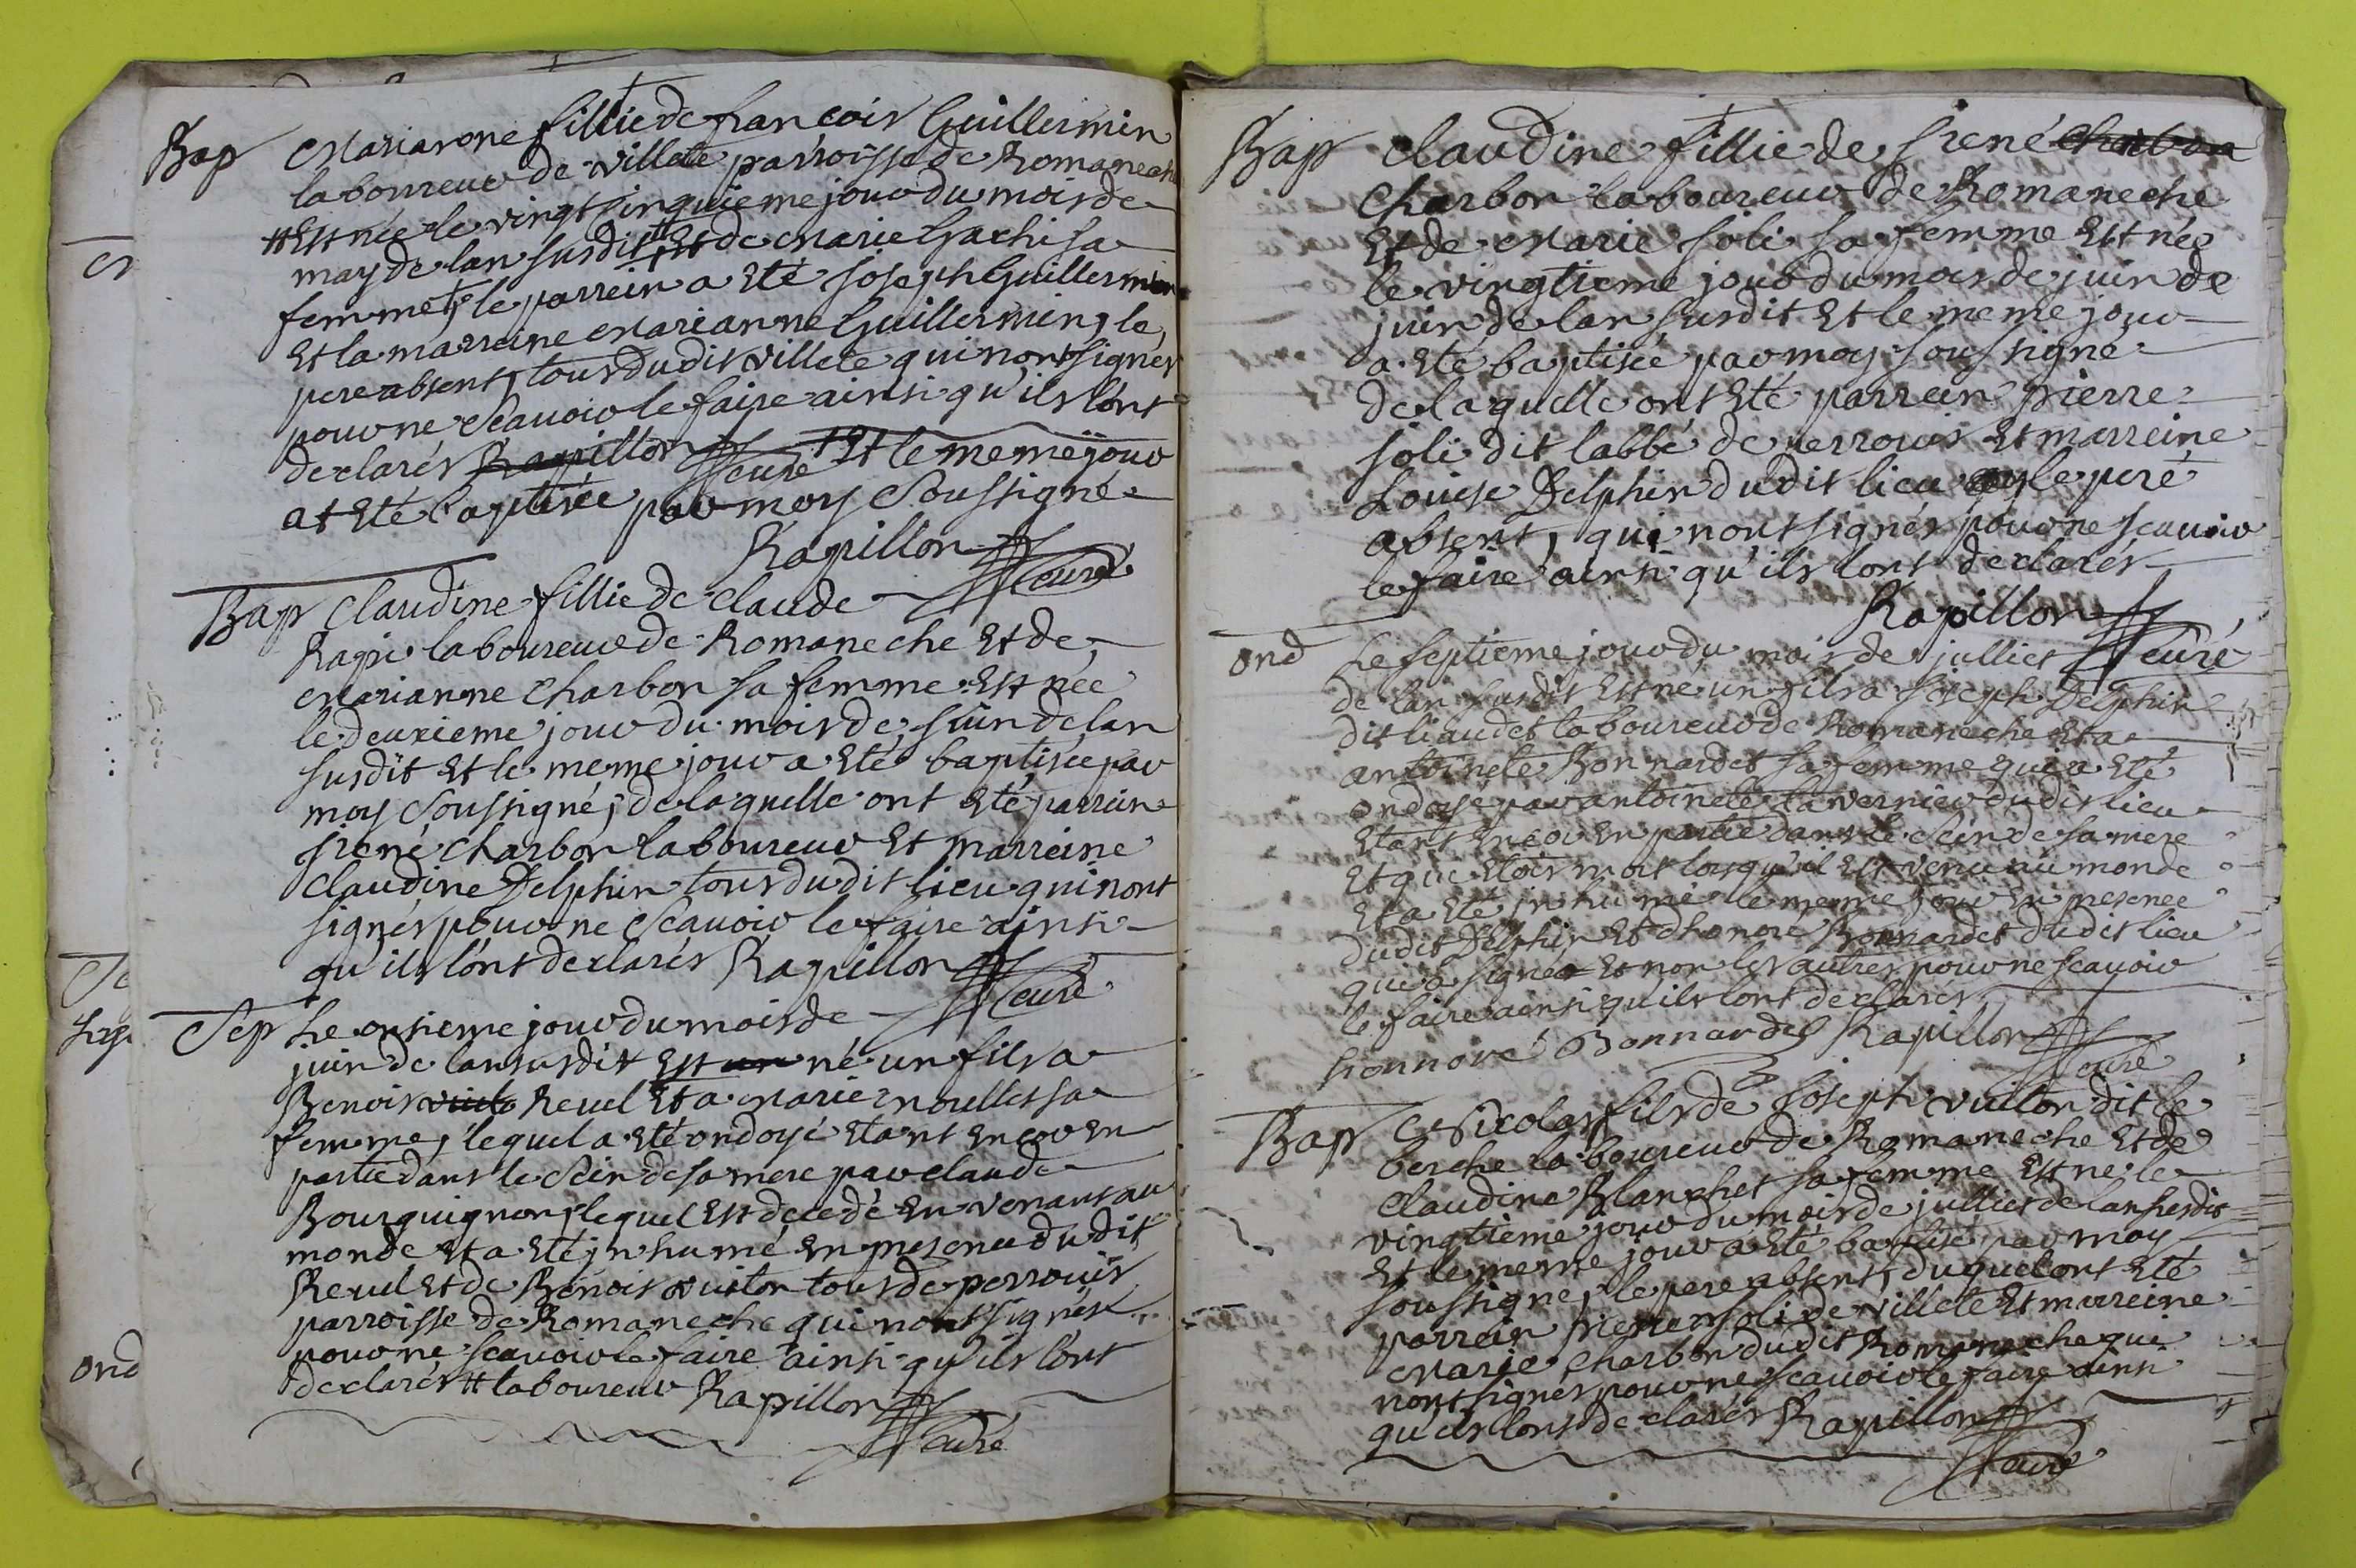 Bap Marianne fillie de françois Guillermin
laboureur de villete parroisse de Romaneche
# Est née le vingt sinquieme jour du mois de
may de lan susdit # Et de Marie Gachi sa
femme + le parrein a Eté joseph Guillermin
Et la marreine Marianne Guillermin, le
pere absent, tous dudit villete qui nont signés
pour ne Scauoir le faire ainsi qu'ils lont
declarés Rapillon curé + Et le meme jour
at Eté baptisée par moy Soussigné
Rapillon curé
Bap Claudine fillie de Claude
Ragi laboureur de Romaneche Et de
Marianne Charbon sa femme Est née
le deuxieme jour du mois de juin de lan
susdit Et le meme jour a Eté baptisée par
moy Soussigné, de laquelle ont Eté parrein
jrené Charbon laboureur Et marreine
Claudine Delphin tous dudit lieu qui nont
signés pour ne Scauoir le faire ainsi
qu'ils lont declarés Rapillon curé
Sep Le onsieme jour du mois de
juin de lan susdit Est né un fils a
Benoit Reuel Et a Marie noullet sa
femme, lequel a Eté ondoyé Etant Encor En
partie dans le Sein de sa mere par Claude
Bourguignon, lequel Est decedé En venant au
monde Et a Eté jnhumé En presence dudit
Reuel Et de Benoit vuiton tous de perrouis
parroisse de Romaneche qui nont signés
pour ne scauoir le faire ainsi qu'ils lont
declarés # laboureur Rapillon curé
Bap Claudine fillie de jrené Charbon
Charbon laboureur de Romaneche
Et de Marie joli sa femme Est née
le vingtieme jour du mois de juin de
juin de lan susdit Et le meme jour
a Eté baptisée par moy soussigné
de laquelle ont Eté parrein pierre
joli dit labbé de perrouis Et marreine
Louise Delphin dudit lieu le pere
absent, qui nont signés pour ne scauoir
le faire ainsi qu'ils lont declarés
Rapillon curé
ond Le septieme jour du mois de julliet
de lan susdit Est né un fils a joseph Delphin
dit liaudet laboureur de Romaneche Et a
antoinete Bonnardet sa femme qui a Eté
ondoyé par antoinete tavernier dudit lieu
Etant Encor En partie dans le Sein de sa mere
Et que Etoit mort lorsqu'il Est venu au monde
Et a Eté jnhumé le meme jour En presence
dudit Delphin Et dhonoré Bonnardet dudit lieu
qui a signé Et non les autres pour ne scauoir
le faire ainsi qu'ils lont declarés
honnore Bonnardel Rapillon curé
Bap Nicolas fils de joseph vuiton dit le
berche laboureur de Romaneche Et de
Claudine Blanchet sa femme Est né le
vingtieme jour du mois de julliet de lan susdit
Et le meme jour a Eté baptisé par moy
soussigné, le pere absent, duquel ont Eté
parrein pierre joli de villete Et marreine
Marie Charbon dudit Romaneche qui
nont signés pour ne scauoir le faire ainsi
qu'ils lont declarés Rapillon
curé